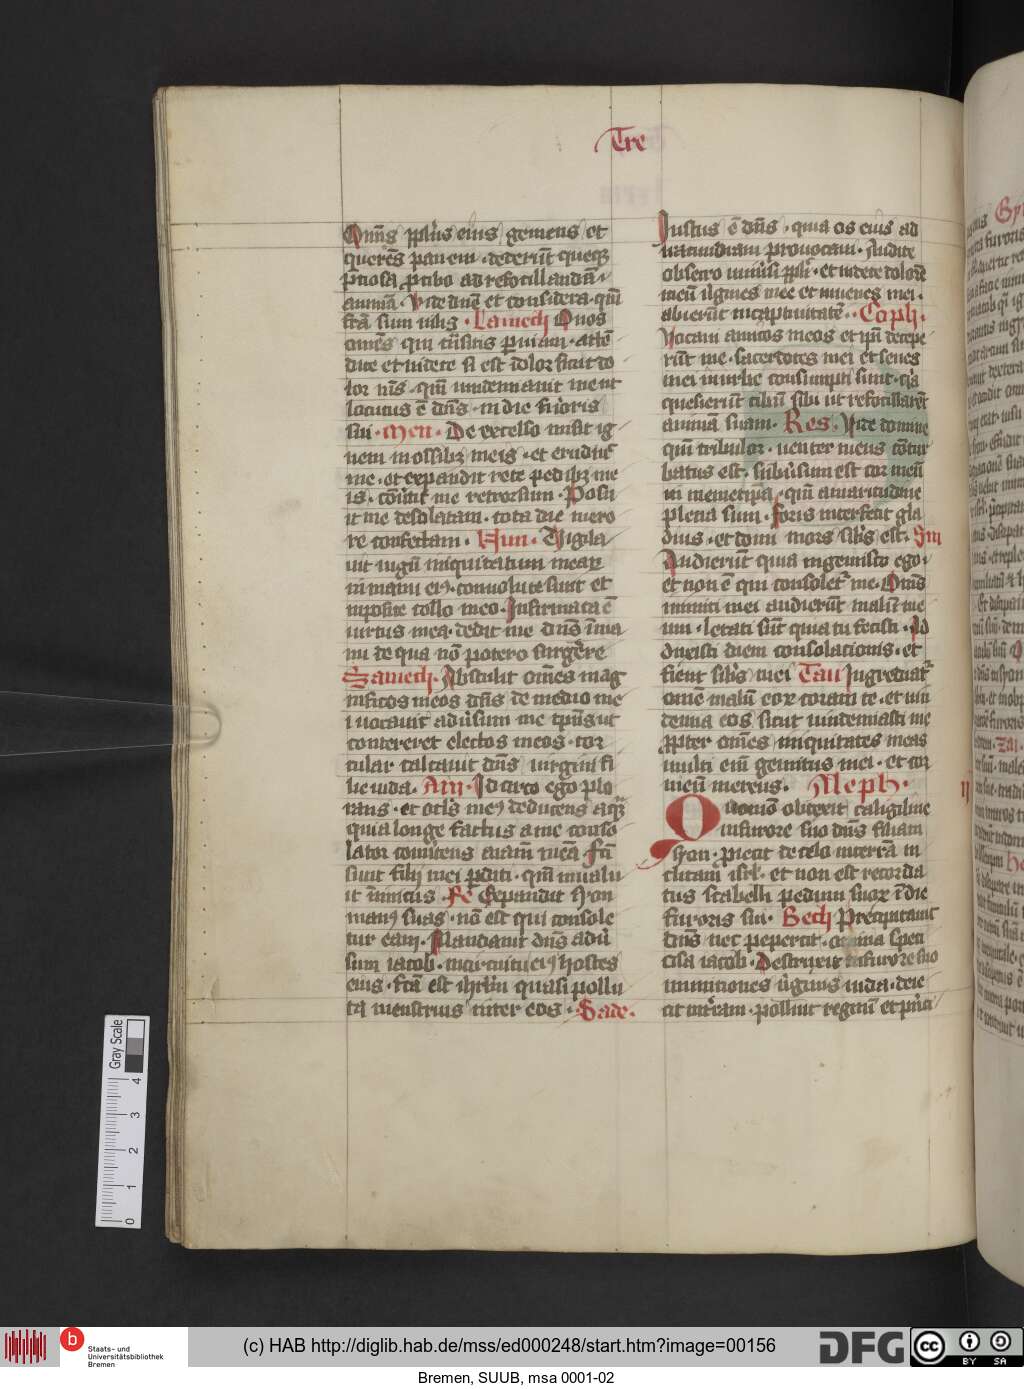 Tre
Omīs ppl'us eius gemens et
querēs panem · dederūt queqȝ
p̄tiosa p̄ cibo ad refocillandā
animā · Vide dn̄e et considera · qm̄
fc̄a sum uilis · Lamech O uos
om̄s qui tn̄sitis p̱ uiam · atte͞
dite et uidete si est dolor sicut do
lor m̄s · qm̄ uindemiauit me ut
locutus ē dn̄s · in die furoris
sui · Men · De excelso misit ig
nem in ossibȝ meis · et erudiuᷓ
me · et expandit rete pedibȝ me
is · cōuertit me retrorsum · Posu
it me desolatam · tota die mero
re confectam · Nun · Vigila
uit iugū iniquitatum mearꝝ
in manu eiꝰ · conuolute sunt et
inposite collo meo · Infirmata ē
uirtus mea · dedit me dn̄s ī ma
nu de qua nō potero surgere
Samech · Abstulit om̄es mag
nificos meos dn̄s de medio me
i uocauit adūsum me tp̄us ut
contereret electos meos · tor
cular calcauit dn̄s uirgini fi
lie iuda · Ayn · Idcirco ego plo
rans · et ocl's meꝰ deducens aq̄ȝ
quia longe factus a me conso
lator conuertens aīam meā fc̄i
sunt filij mei p̱diti · qm̄ inualu
it inimicus · Fe Expandit syon
manꝰ suas · nō est qui console
tur eam · Mandauit dn̄s adū
sum iacob · in circuitu eiꝰ hostes
eius · fc̄a est ihrl'm quasi pollu
ta menstruis inter eos · Sade ·
Iustus ē dn̄s · quia os eius ad
iracundiam prouocaui · Audite
obsecro uniūsi ppl'i · et uidete dolorē
meū uirgines mee et iuuenes mei ·
abierūt in captiuitatē · Coph ·
Vocaui amicos meos et ip̄i decepe
rūt me · sacerdotes mei et senes
mei in urbe consumpti sunt · q̄a
quesierūt cibū sibi ut refocillarēt
animā suam · Res · Vide domine
qm̄ tribulor · uenter meus cōtur
batus est · subūsum est cor meū
in memetip̄a · qm̄ amaritudine
plena sum · foris interfecit gla
dius · et domi mors sil'is est · Sin
Audierūt quia ingemisco ego ·
et non ē qui consoletᷓ me · Om̄s
inimici mei audierūt malū me
um · letati sūt quia tu fecisti · Ad
duxisti diem consolacionis · et
fient sil'es mei Tau Ingrediatᷓ
om̄e malū eoꝝ coram te · et uin
demia eos sicut uindemiasti me
p̱pter om̄es iniquitates meas
multi eni̅ gemitus mei · et cor
meū merens · Aleph · ij
Quomō obtexit caligine
in furore suo dn̄s filiam
syon · p̄iecit de celo in terrā in
clitam isrl' · et non est recorda
tus scabelli pedum suoꝝ ī die
furoris sui · Bech Precipitauit
dn̄s nec pepercit · omnia speci
osa iacob · Destruxit in furore suo
munitiones uirginis iuda · deie
cit in t'ram · polluit regnū et p̄nci
(c) HAB http://diglib.hab.de/mss/ed000248/start.htm?image=00156
Staats- und
Universitätsbibliothek
Bremen
DFG
cc BY SA
Bremen, SUUB, msa 0001-02
Gray Scale
0 1 2 3 4